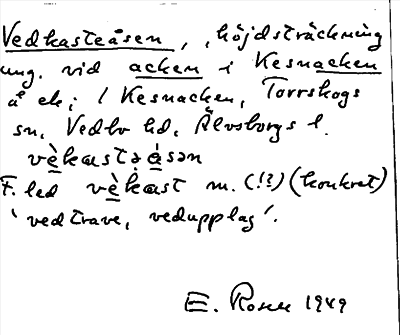 Vedkasteåsen, höjdsträckning
ung. vid acken i Kesnacken
å ek; / Kesnacken, Torrskogs
sn, Vedbo hd, Älvsborgs l.
vèkastəåsən
F. led vèkast m. (!?) (konkret)
'vedtrave, vedupplag'.
E. Rosell 1949